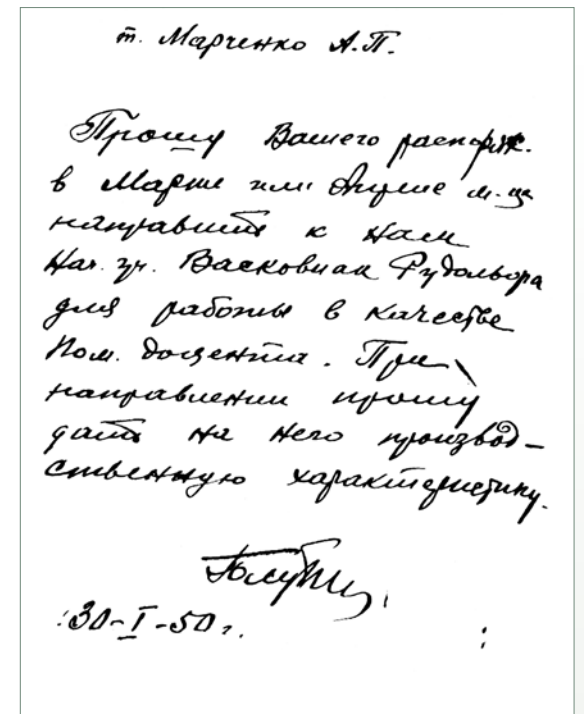 т. Марченко А.П.
Прошу Вашего распоряж.
в Марте или Апреле м-це
направить к нам
Нач. уч. Васковиак Рудольфа
для работы в качестве
Пом. доцента. При
направлении прошу
дать на него производ-
ственную характеристику.
30-I-50 г.